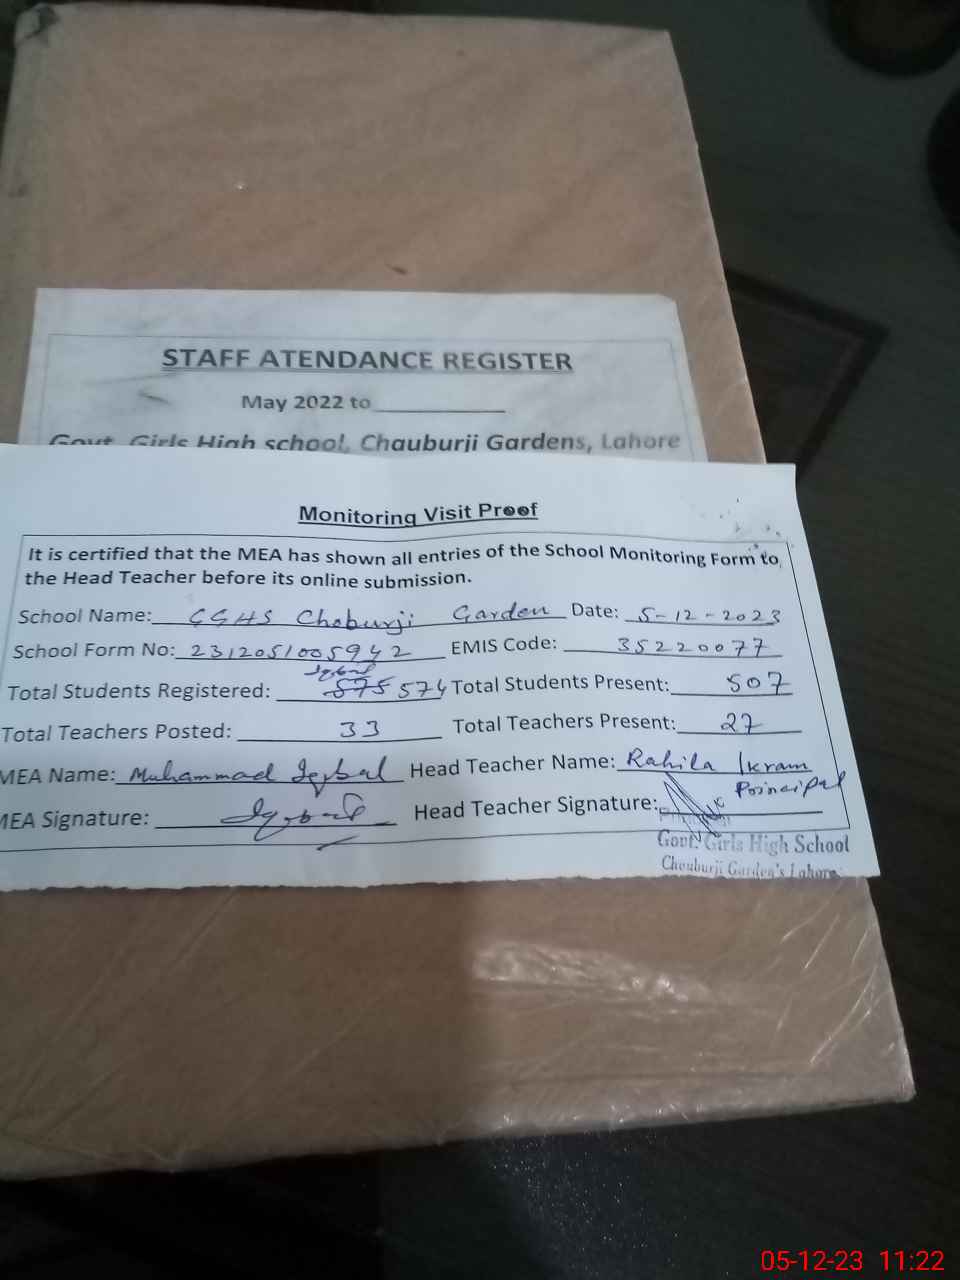 STAFF ATENDANCE REGISTER
May 2022 to
Govt. Girls High school, Chauburji Gardens, Lahore
Monitoring Visit Proof
It is certified that the MEA has shown all entries of the School Monitoring Form to
the Head Teacher before its online submission.
School Name: GGHS Choburji Garden Date: 5-12-2023
School Form No: 2312051005942 EMIS Code: 35220077
Iqbal
Total Students Registered: 575 574 Total Students Present: 507
Total Teachers Posted: 33 Total Teachers Present: 27
MEA Name: Muhammad Iqbal Head Teacher Name: Rahila Ikram
Principal
MEA Signature: Iqbal Head Teacher Signature:
Govt. Girls High School
Chouburji Garden's Lahore
05-12-23 11:22